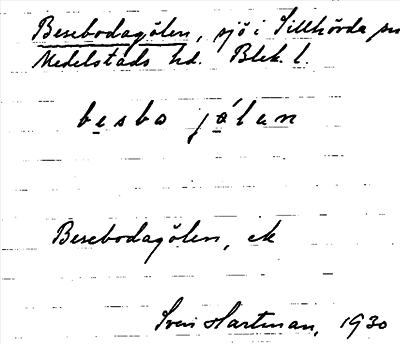 Besebodagölen, sjö i Tillhörda sn
Medelstads hd. Blek. l.
besbo jálan
Besebodagölen, ek
Sven Hartman, 1930